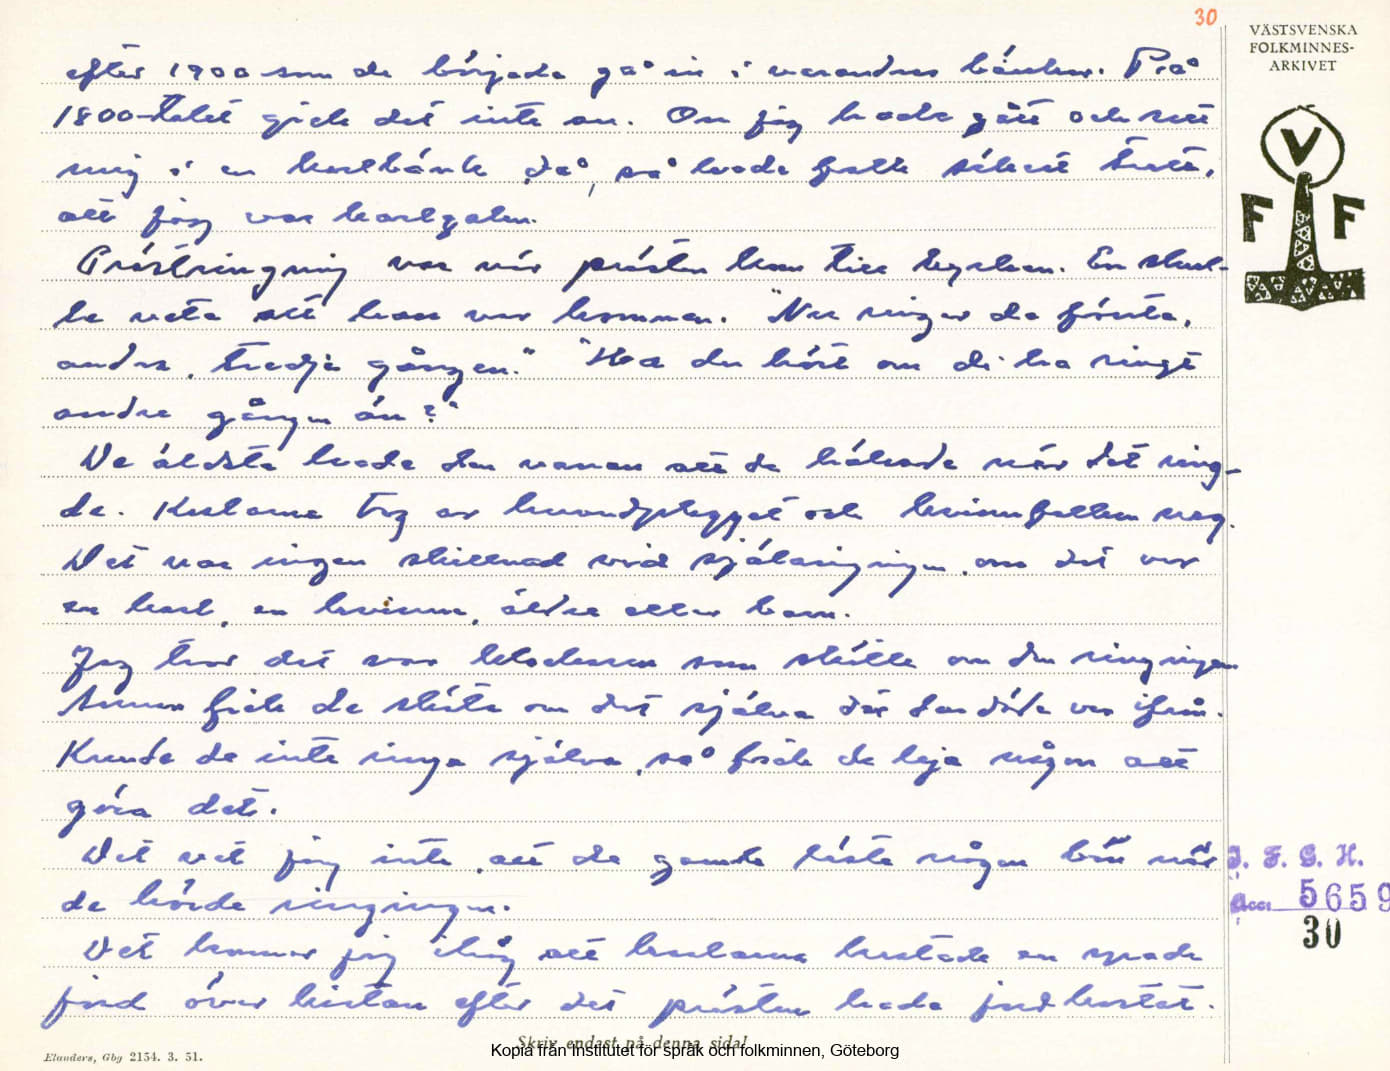 30
VÄSTSVENSKA
FOLKMINNES-
ARKIVET
efter 1900 som de började gå in i varandras bänkar. På
1800-talet gick det inte an. Om jag hade gått och satt
mig i en karlbänk då, så hade folk säkert trott,
att jag var karlgalen.
Prästringning var när prästen kom till kyrkan. En skul-
le veta att han var kommen. "Nu ringer de första,
andra, tredje gången." "Ha du hört om di ha ringt
andre gången än?"
De äldsta hade den vanan att de hälsade när det ring-
de. Karlarna tog av huvudplagget och kvinnfolken neg.
Det var ingen skillnad vid själaringningen, om det var
en karl, en kvinna, äldre eller barn.
Jag tror det var klockaren som skötte om den ringningen
annars fick de sköta om det själva där den döde var ifrån.
Kunde de inte ringa själva, så fick de leja någon att
göra det.
Det vet jag inte, att de gamla läste någon bön när
de hörde ringningen.
Det kommer jag ihåg att karlarna kastade en spade
jord över kistan efter det prästen hade jordkastat.
V
F F
J. F. G. H.
Acc. 5659
30
Skriv endast på denna sida!
Kopia från Institutet för språk och folkminnen, Göteborg
Elanders, Gbg 2154. 3. 51.